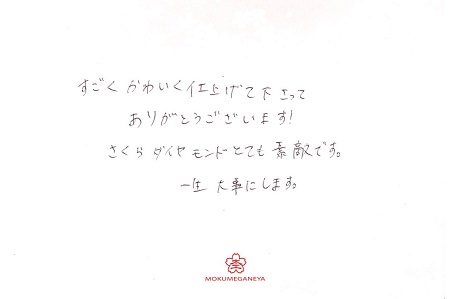 すごくかわいく仕上げて下さって
ありがとうございます!
さくらダイヤモンドとても素敵です。
一生大事にします。
MOKUMEGANEYA